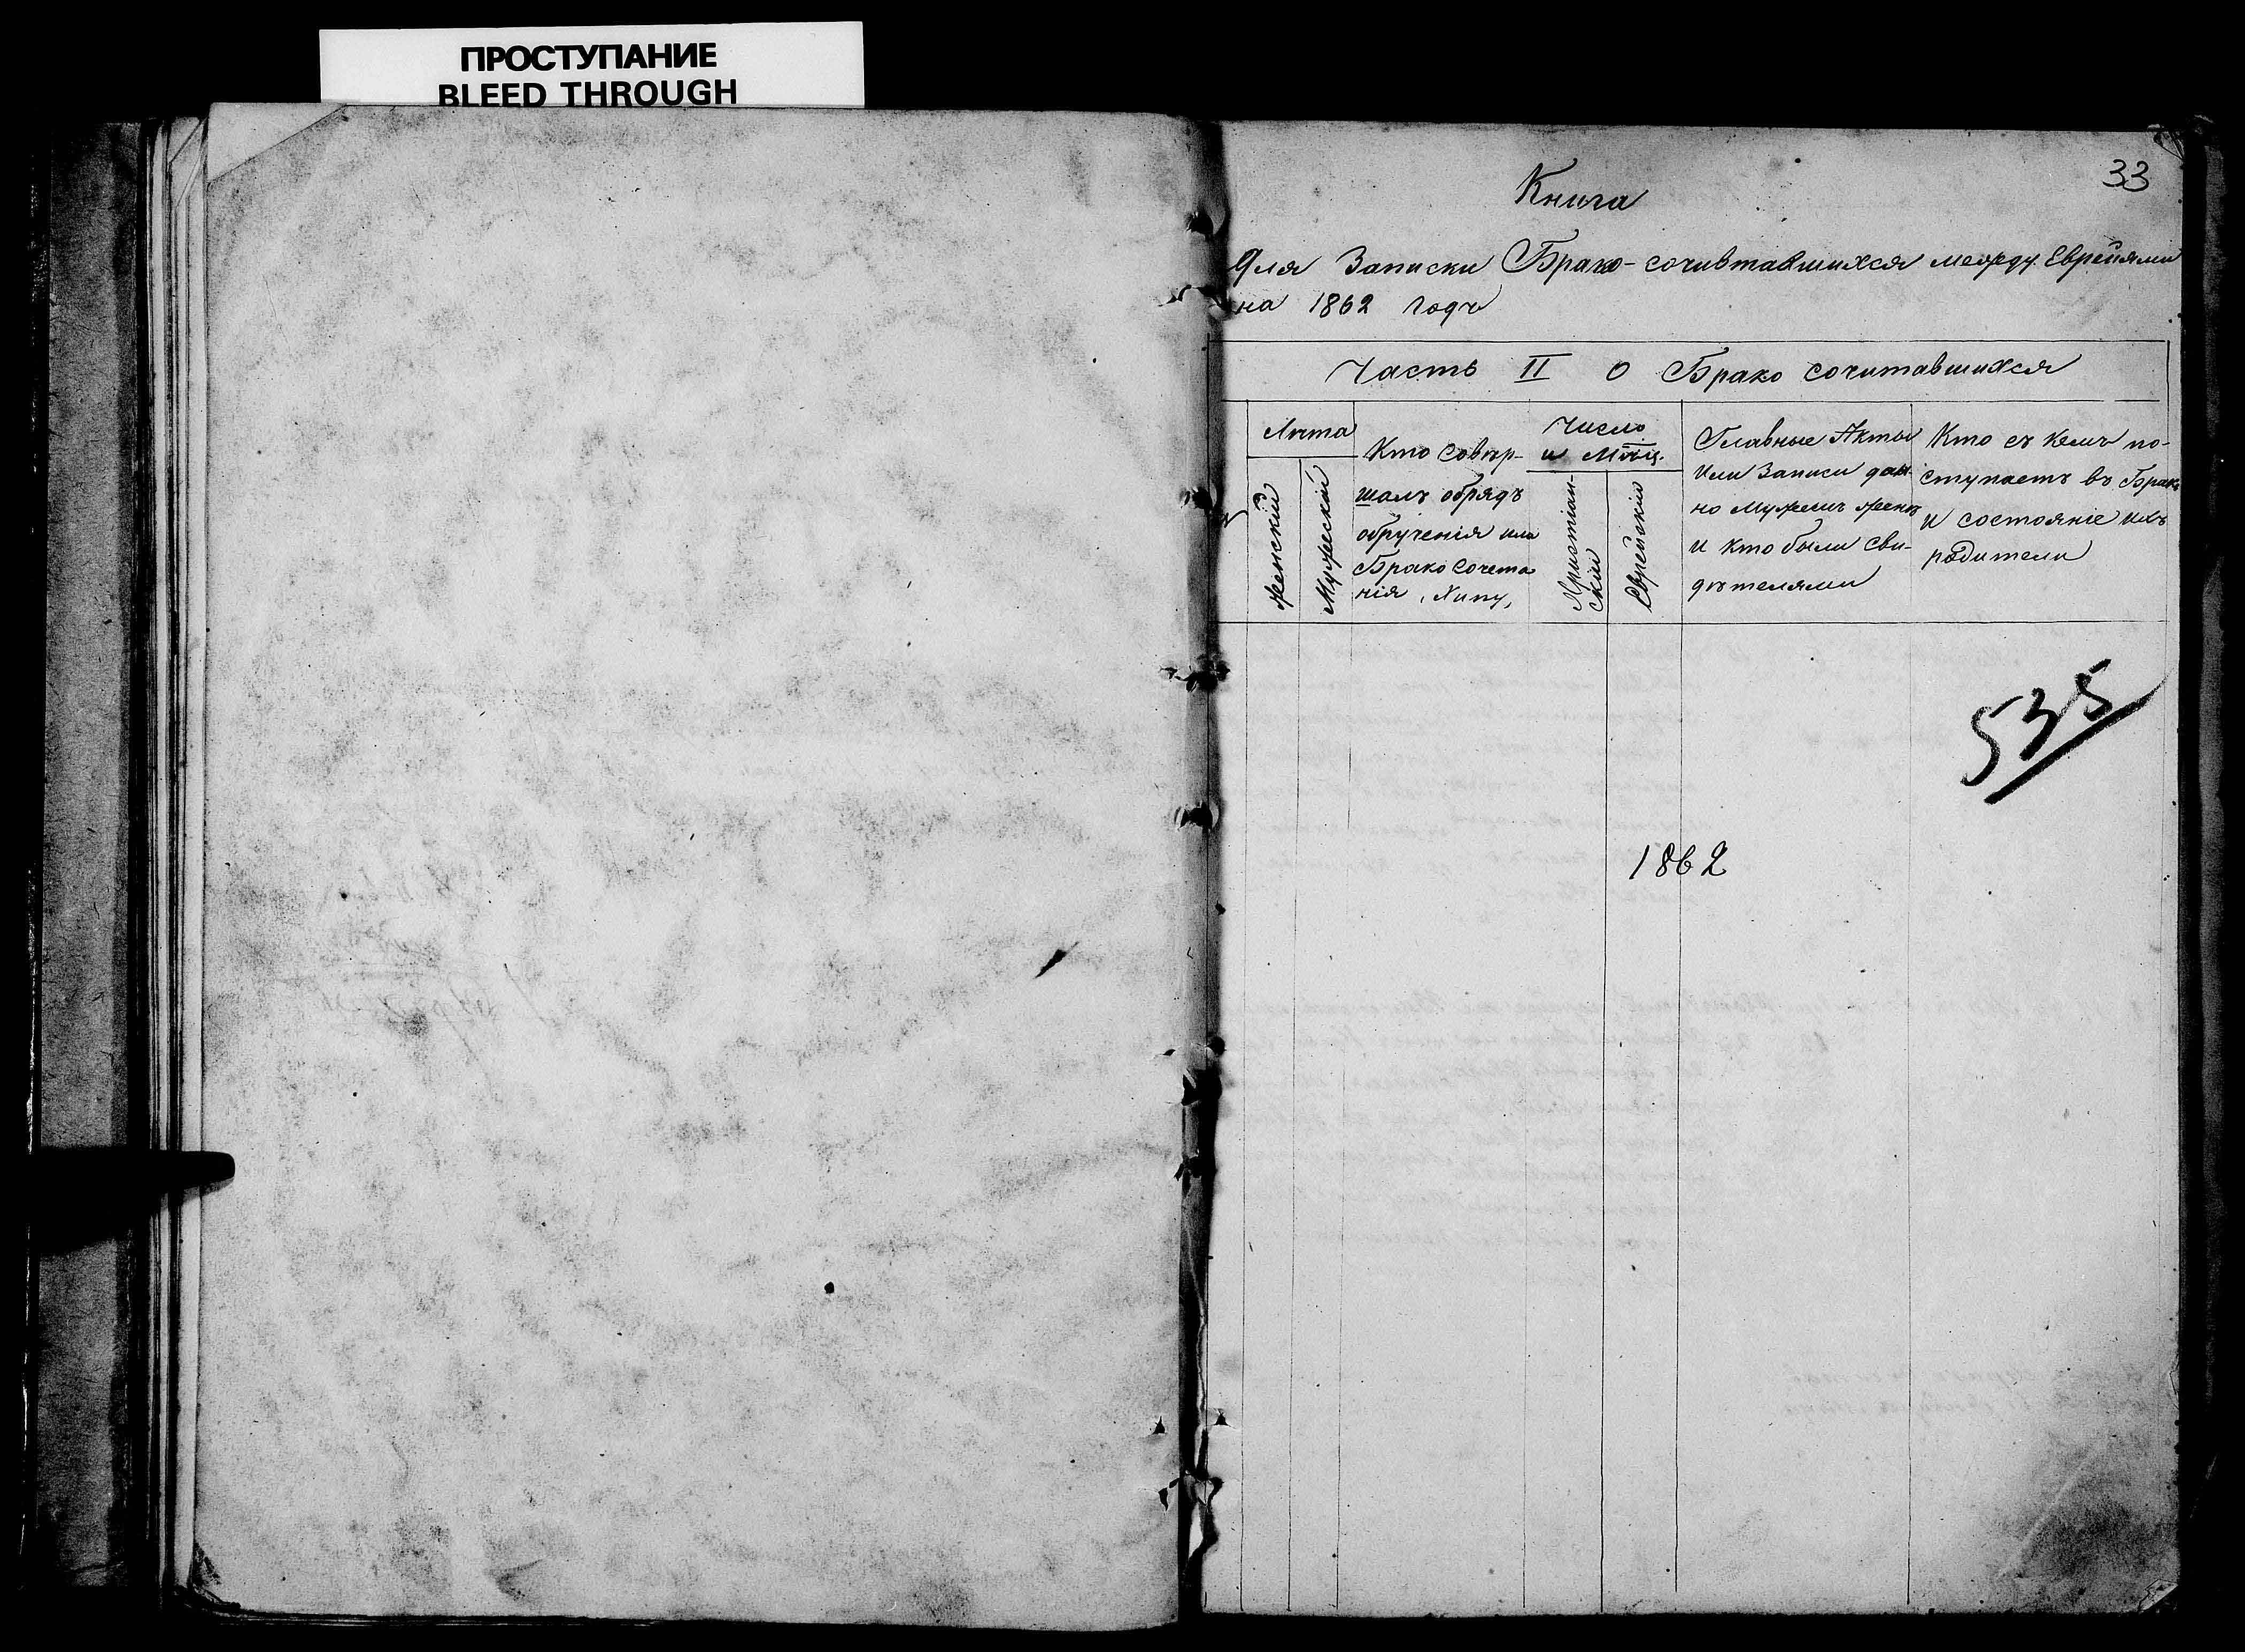 ПРОСТУПАНИЕ
BLEED THROUGH
33
Книга
Для Записки Брако-сочивтавшихся между Евреями
на 1862 годъ
Часть II О Брако сочитавшихся
№
Лѣта
женскій
Мужескій
Кто совѣр-
шалъ обрядъ
обрученія или
Брако Сочета
нія, Хипу,
Число
и Мѣяц.
Христіан-
скій
Еврейскій
Главные Акты
Или Записи дан-
но Мужемъ женѣ
и кто были сви-
дѣтелями
Кто съ кемъ по-
ступаетъ въ Бракъ
и состояніе ихъ
родители
535
1862